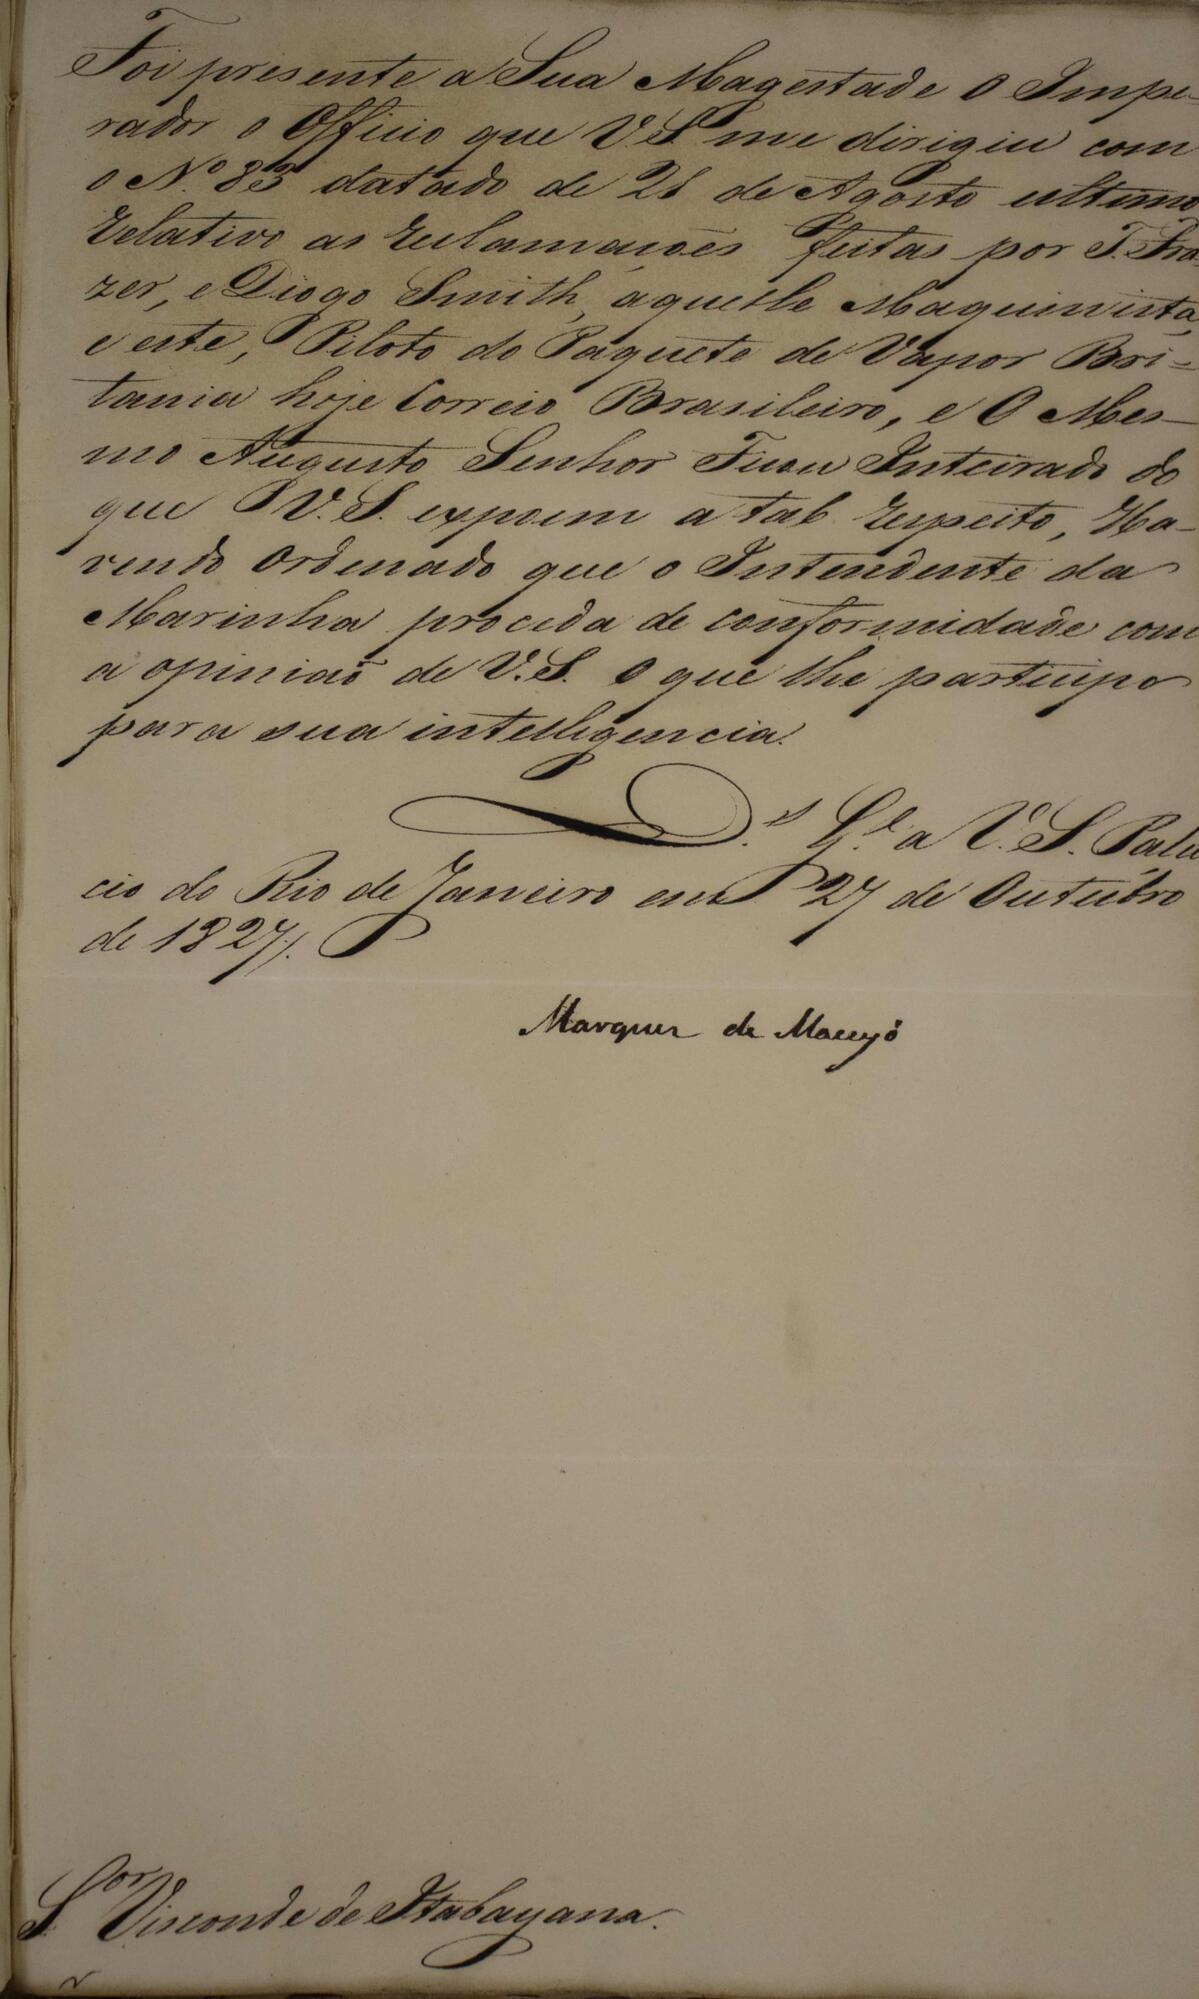 Foi presente a Sua Magestade O Impe-
rador o Officio que V.S. me dirigiu com
o N.º 83 datado de 21 de Agosto ultimo
relativo as reclamações feitas por T. Fra-
zer, e Diogo Smith, aquelle Maquinista,
e este, Piloto do Paquete de Vapor Bri-
tania hoje Correio Brasileiro, e O Mes-
mo Augusto Senhor Ficou Inteirado do
que V. S. expoem a tal respeito, Ha-
vendo Ordenado que o Intendente da
Marinha proceda de conformidade com
a opinião de V.S. O que lhe participo
para sua intelligencia.
D.s G.e a V. S. Pala
cio do Rio de Janeiro em 27 de Outubro
de 1827/.
Marquez de Maceyó
S.or Visconde de Itabayana.